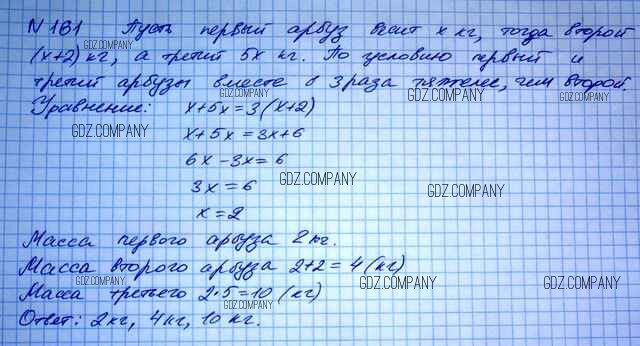 N 161 Пусть первый арбуз весит x кг, тогда второй
(x+2) кг, а третий 5x кг. По условию первый и
третий арбузы вместе в 3 раза тяжелее, чем второй.
Уравнение: x+5x=3(x+2)
x+5x=3x+6
6x-3x=6
3x=6
x=2
Масса первого арбуза 2 кг.
Масса второго арбуза 2+2=4 (кг)
Масса третьего 2·5=10 (кг)
Ответ: 2кг, 4кг, 10 кг.
GDZ.COMPANY
GDZ.COMPANY
GDZ.COMPANY
GDZ.COMPANY
GDZ.COMPANY
GDZ.COMPANY
GDZ.COMPANY
GDZ.COMPANY
GDZ.COMPANY
GDZ.COMPANY
GDZ.COMPANY
GDZ.COMPANY